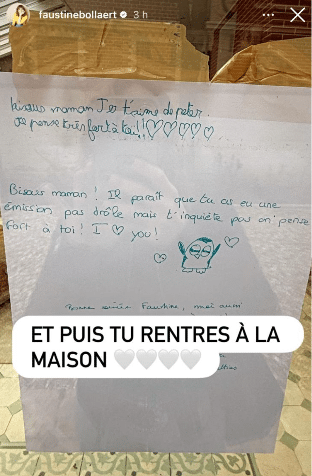 faustinebollaert 3 h
bisous maman J'es t'aime de peter.
Je pense très fort à toi!!
Bisous maman! Il paraît que tu as eu une
émission pas drôle mais t'inquiète pas on pense
fort à toi! I ♡ you!
Bonne soirée Faustine, moi aussi
ET PUIS TU RENTRES À LA
MAISON 🤍🤍🤍🤍